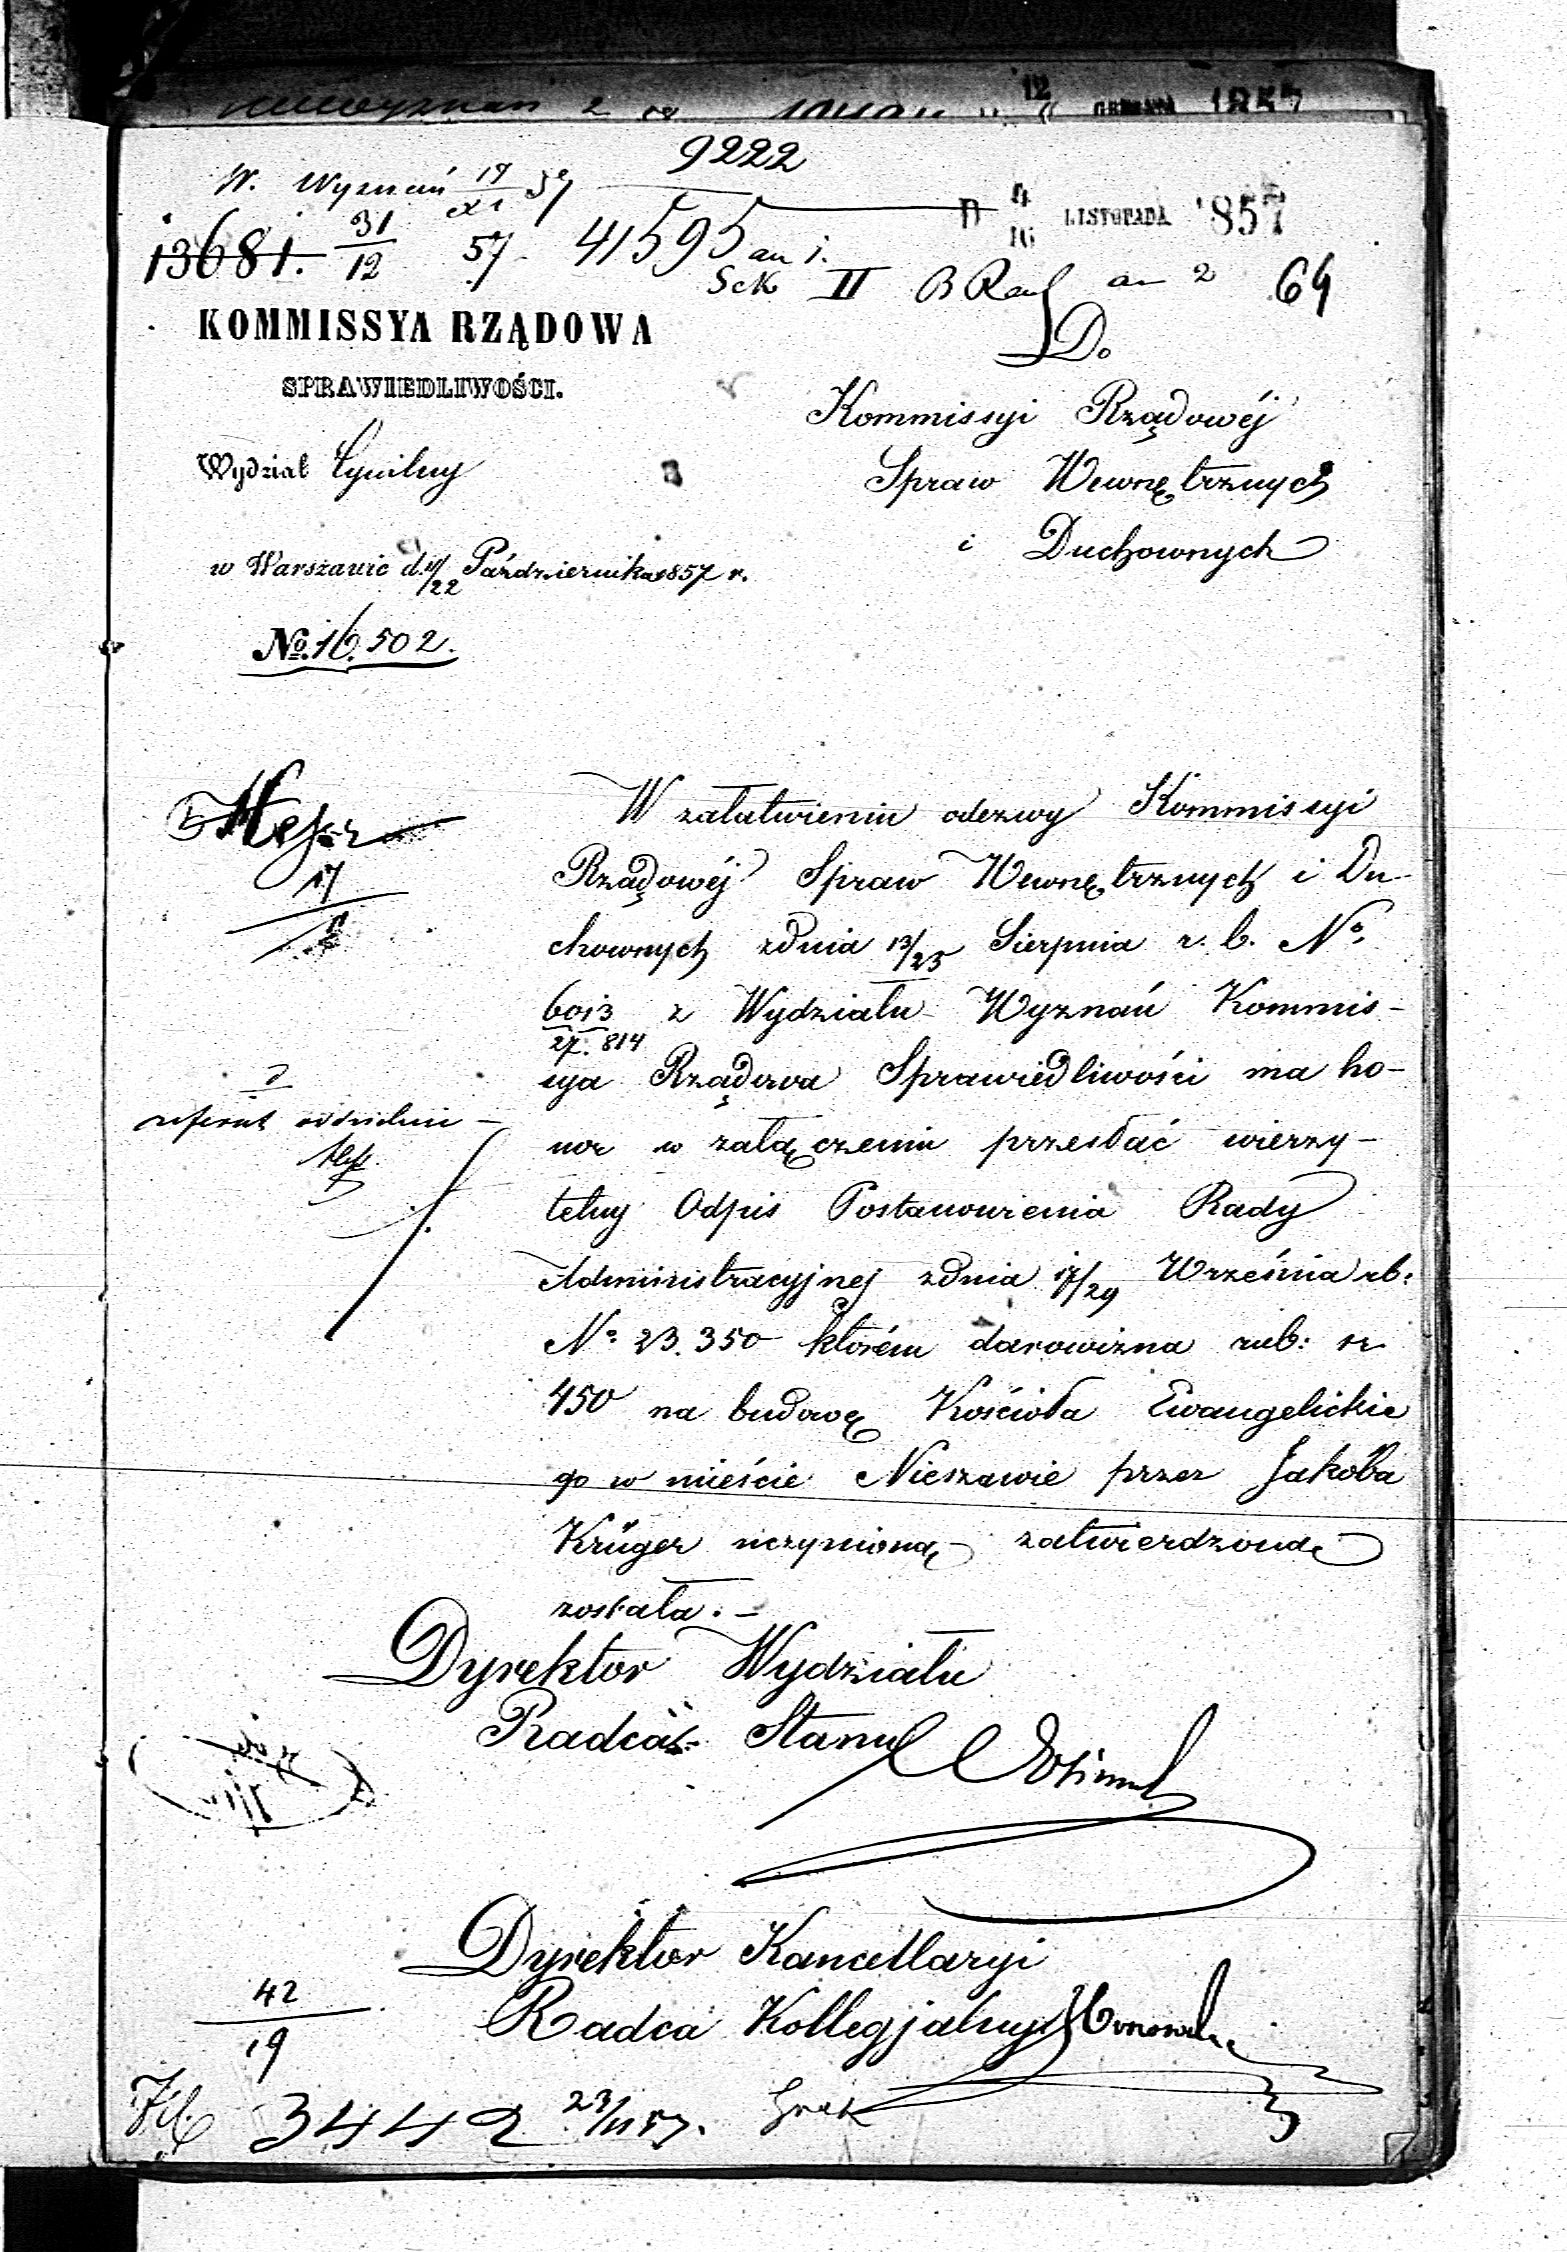 9222
W. Wyznań 17/XI 57
D 4/16 LISTOPADA 1857
13681. 31/12 57. 41595 an 1.
Sek II B Rad an 2 64
KOMMISSYA RZĄDOWA
SPRAWIEDLIWOŚCI.
Wydział Cywilny
w Warszawie d. /22 Października 1857 r.
No. 16.502.
Do
Kommissyi Rządowéj
Spraw Wewnętrznych
i Duchownych
W załatwieniu odezwy Kommissyi
Rządowéj Spraw Wewnętrznych i Du-
chownych z dnia 13/25 Sierpnia r. b. No.
6013/27.814 z Wydziału Wyznań Kommis-
sya Rządowa Sprawiedliwości ma ho-
nor w załączeniu przesłać wierzy-
telny Odpis Postanowienia Rady
Administracyjnej z dnia 17/29 Września rb:
No 23.350 którém darowizna rub: sr
450 na budowę Kościoła Ewangelickie
go w mieście Nieszawie przez Jakóba
Krüger uczynioną zatwierdzoną
została. –
referat oddzielnie –
Dyrektor Wydziału
Radca Stanu
Dyrektor Kancellaryi
Radca Kollegjalny
42/19
3442 23/11 57.